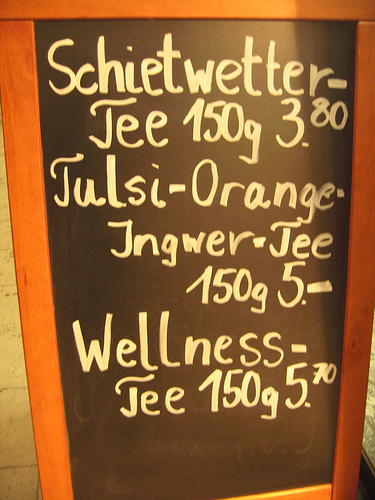 Schietwetter-
Tee 150g 3.80
Tulsi-Orange-
Ingwer-Tee
150g 5.-
Wellness-
Tee 150g 5.70